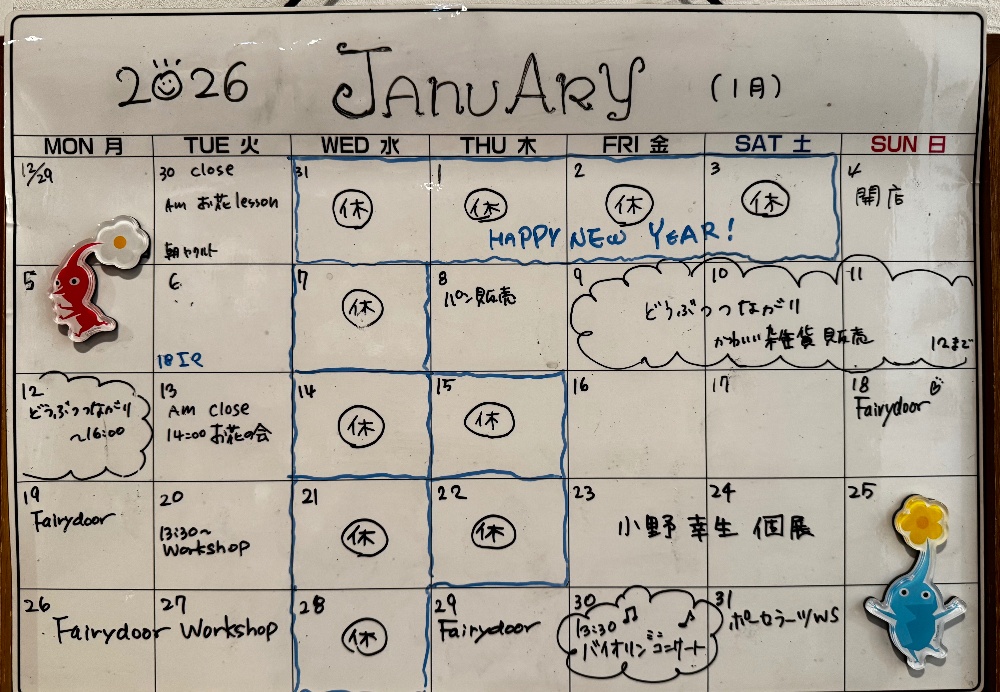 2026 JANUARY (1月)
MON 月 TUE 火 WED 水 THU 木 FRI 金 SAT 土 SUN 日
12/29
30 close
Am お花 lesson
朝ヤクルト
31
休
1
休
2
休
3
休
HAPPY NEW YEAR!
4
開店
5
6
18IR
7
休
8
パン販売
9 10 11
どうぶつつながり
かわいい雑貨販売
12まで
12
どうぶつつながり
~16:00
13
Am close
14:00 お花の会
14
休
15
休
16
17
18
Fairydoor
19
Fairydoor
20
13:30~
Workshop
21
休
22
休
23 24
小野幸生 個展
25
26 27
Fairydoor Workshop
28
休
29
Fairydoor
30
13:30
バイオリンミニコンサート
31
ポーセラーツWS